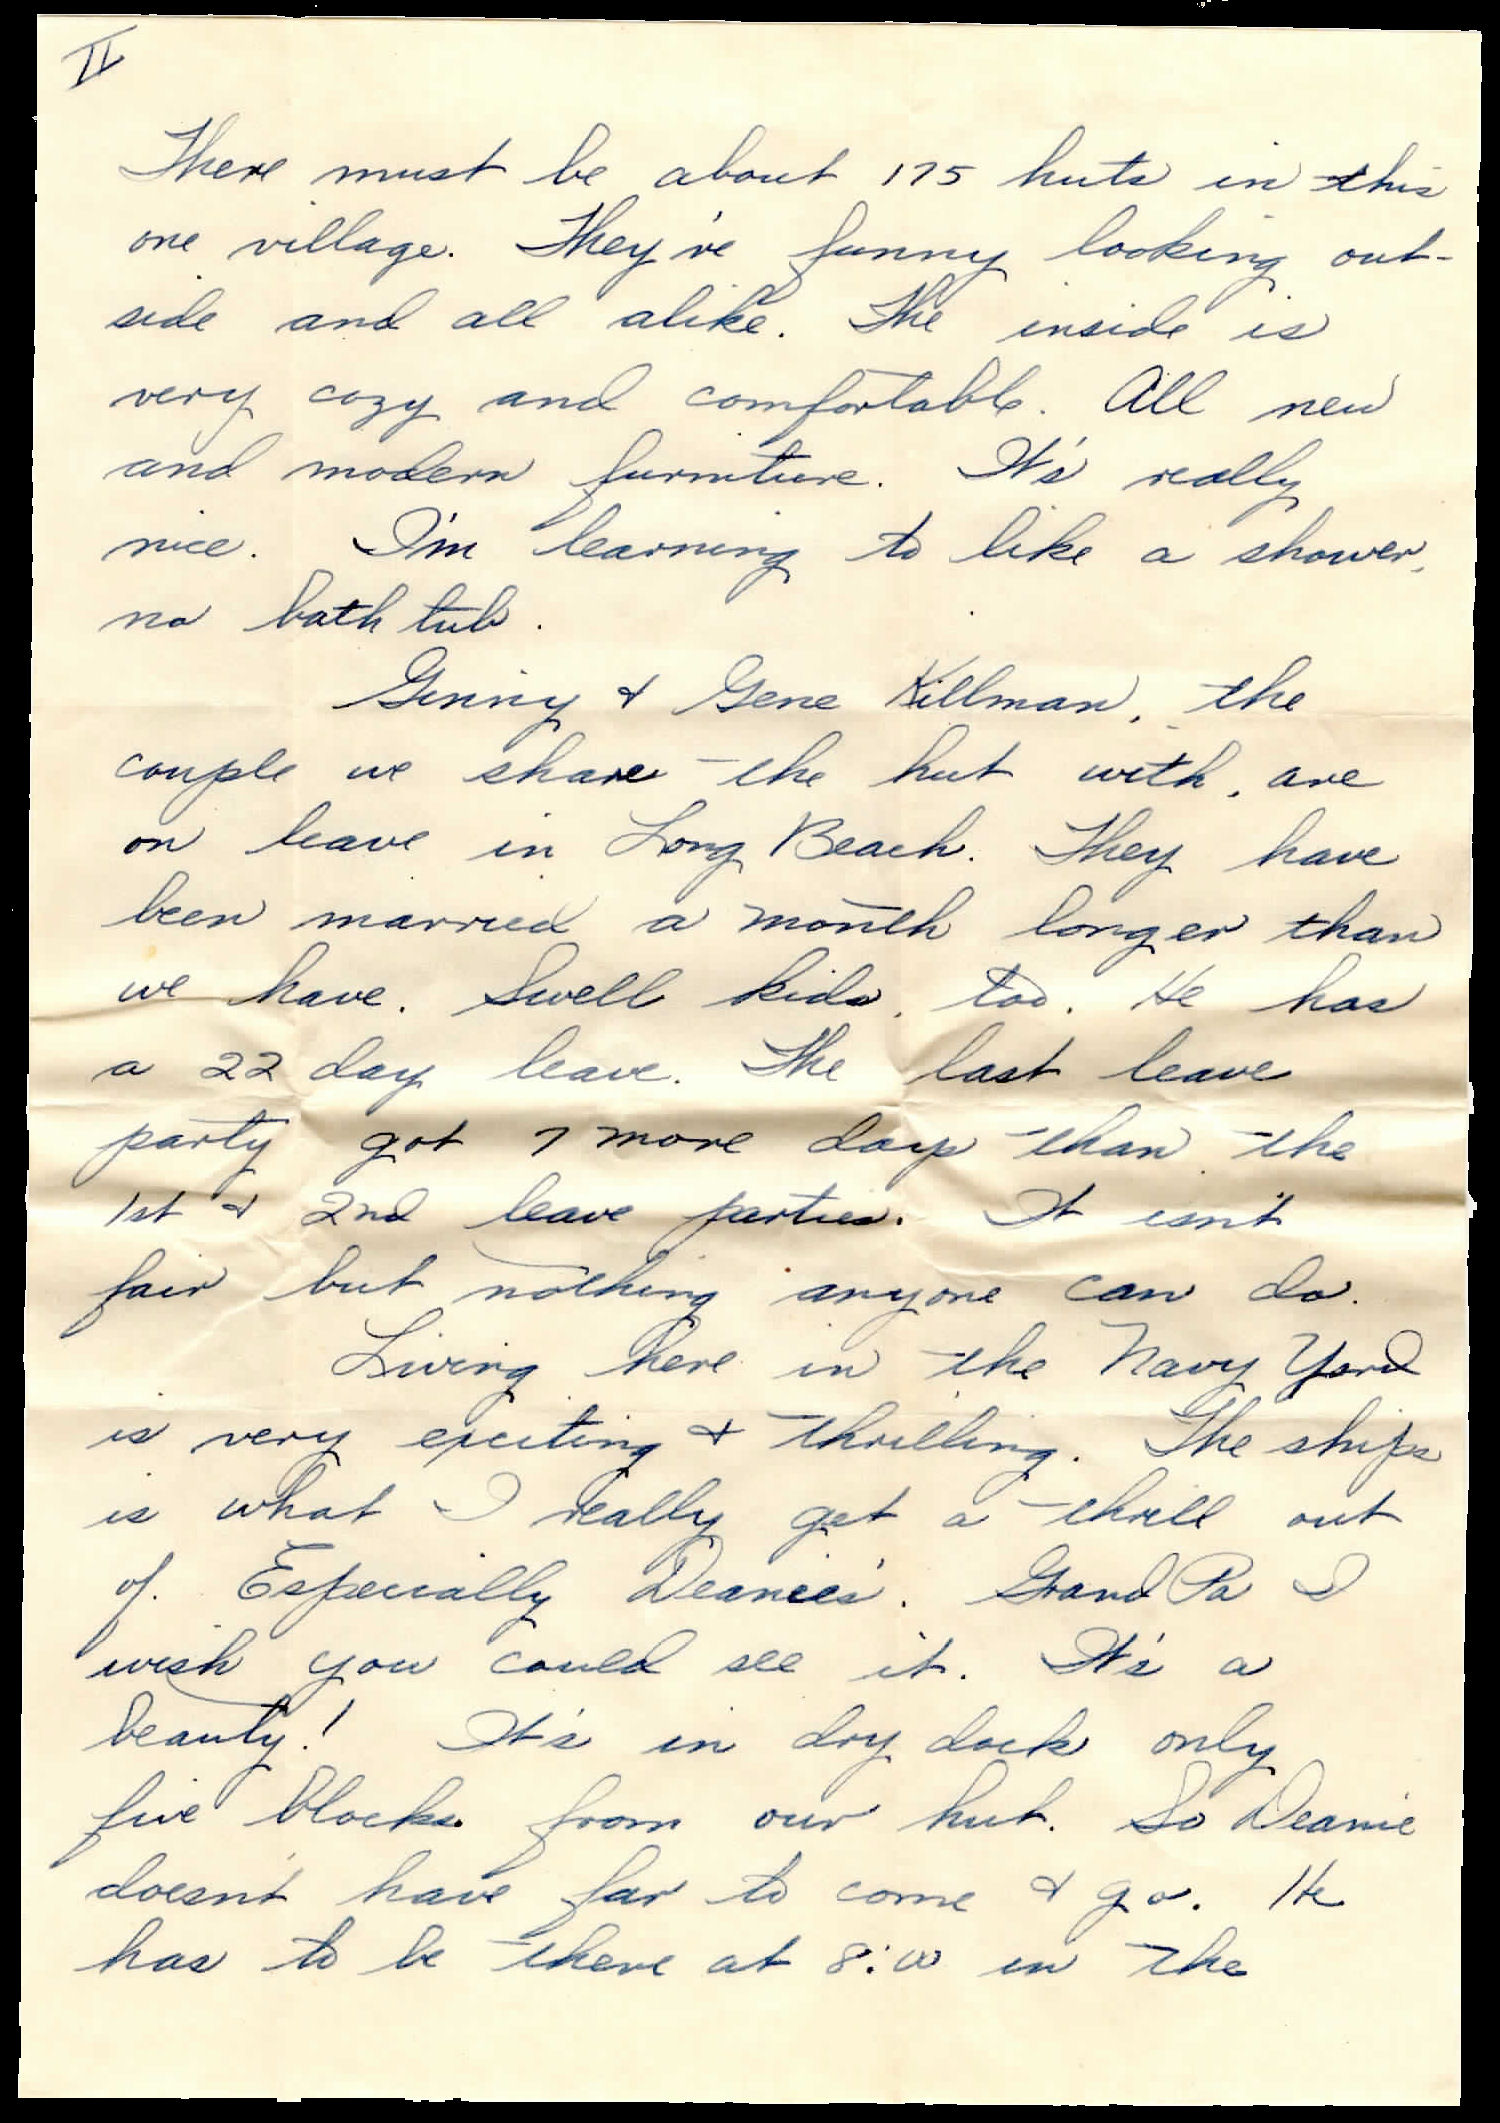 II
There must be about 175 huts in this
one village. They're funny looking out-
side and all alike. The inside is
very cozy and comfortable. All new
and modern furniture. It's really
nice. I'm learning to like a shower,
no bath tub.
Ginny & Gene Killman, the
couple we share the hut with, are
on leave in Long Beach. They have
been married a month longer than
we have. Swell kids, too. He has
a 22 day leave. The last leave
party got 7 more days than the
1st & 2nd leave parties. It isn't
fair but nothing anyone can do.
Living here in the Navy Yard
is very exciting & thrilling. The ships
is what I really get a thrill out
of. Especially Deanie's. Grand Pa I
wish you could see it. It's a
beauty! It's in dry dock only
five blocks from our hut. So Deanie
doesn't have far to come & go. He
has to be there at 8:00 in the